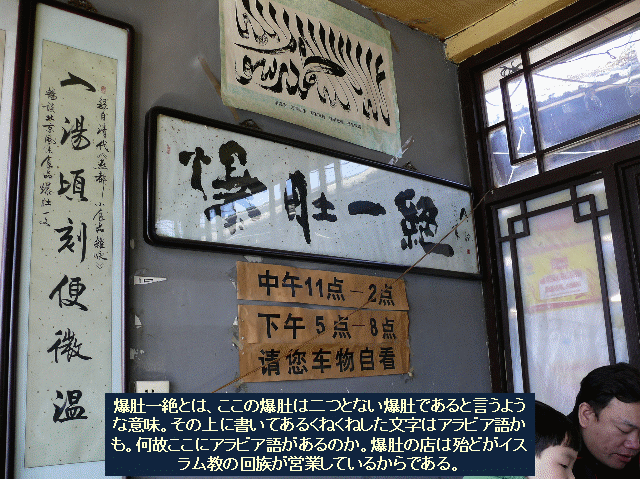 录自清代《燕都小食品雜咏》
入湯頃刻便微温
北京風味食品爆肚一文
爆肚一絕
中午11点－2点
下午 5点－8点
请您车物自看
爆肚一絶とは、ここの爆肚は二つとない爆肚であると言うよう
な意味。その上に書いてあるくねくねした文字はアラビア語か
も。何故ここにアラビア語があるのか。爆肚の店は殆どがイス
ラム教の回族が営業しているからである。